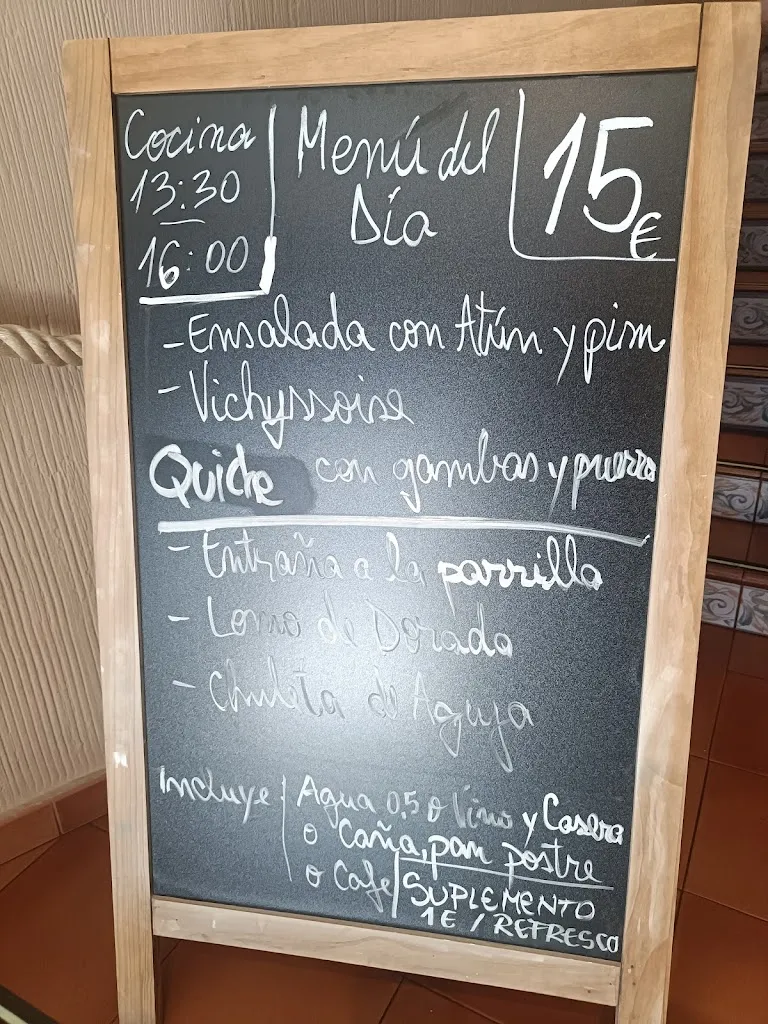 Cocina
13:30
16:00
Menú del
Día
15€
- Ensalada con Atún y pim
- Vichyssoise
Quiche con gambas y puerro
- Entraña a la parrilla
- Lomo de Dorada
- Chuleta de Aguja
Incluye
Agua 0,5 o Vino y Casera
o Caña, pan postre
o Cafe
SUPLEMENTO
1€ / REFRESCO